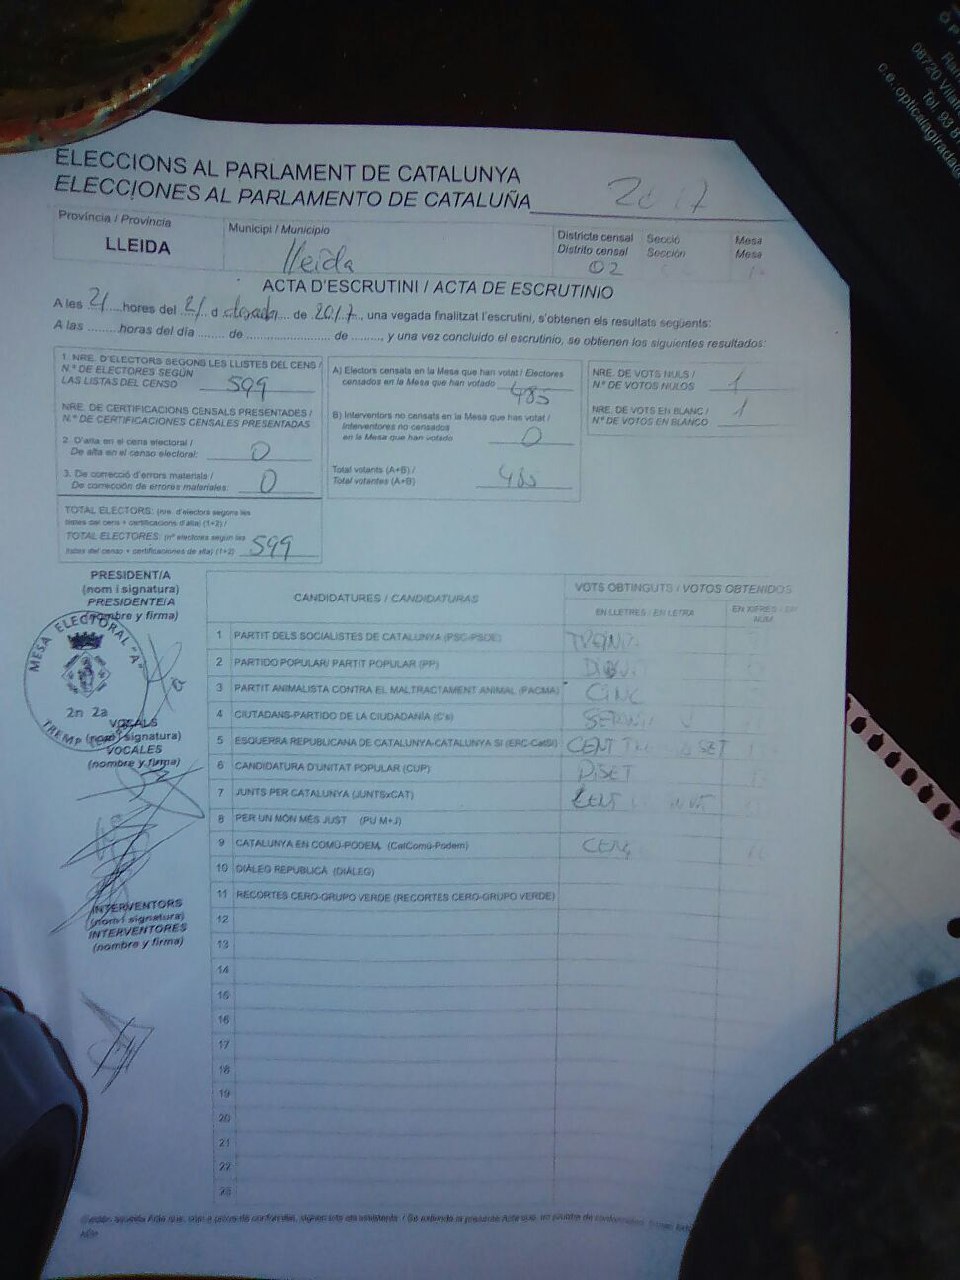 ELECCIONS AL PARLAMENT DE CATALUNYA
ELECCIONES AL PARLAMENTO DE CATALUÑA 2017
Província / Provincia
LLEIDA
Municipi / Municipio
lleida
Districte censal
Distrito censal
02
Secció
Sección
Mesa
Mesa
ACTA D'ESCRUTINI / ACTA DE ESCRUTINIO
A les 21 hores del 21 d de 2017, una vegada finalitzat l'escrutini, s'obtenen els resultats següents:
A las ........ horas del día ........ de ........................ de ........, y una vez concluido el escrutinio, se obtienen los siguientes resultados:
1. NRE. D'ELECTORS SEGONS LES LLISTES DEL CENS /
N.º DE ELECTORES SEGÚN
LAS LISTAS DEL CENSO 599
NRE. DE CERTIFICACIONS CENSALS PRESENTADES /
N.º DE CERTIFICACIONES CENSALES PRESENTADAS
2. D'alta en el cens electoral /
De alta en el censo electoral: 0
3. De correcció d'errors materials /
De corrección de errores materiales: 0
TOTAL ELECTORS: (nre. d'electors segons les
llistes del cens + certificacions d'alta) (1+2) /
TOTAL ELECTORES: (nº electores según las
listas del censo + certificaciones de alta) (1+2) 599
A) Electors censats en la Mesa que han votat / Electores
censados en la Mesa que han votado
B) Interventors no censats en la Mesa que han votat /
Interventores no censados
en la Mesa que han votado 0
Total votants (A+B) /
Total votantes (A+B)
NRE. DE VOTS NULS /
N.º DE VOTOS NULOS 1
NRE. DE VOTS EN BLANC /
Nº DE VOTOS EN BLANCO 1
PRESIDENT/A
(nom i signatura)
PRESIDENTE/A
(nombre y firma)
MESA ELECTORAL "A"
2n 2a
TREMP
VOCALS
(nom i signatura)
VOCALES
(nombre y firma)
INTERVENTORS
(nom i signatura)
INTERVENTORES
(nombre y firma)
CANDIDATURES / CANDIDATURAS
VOTS OBTINGUTS / VOTOS OBTENIDOS
EN LLETRES / EN LETRA
EN XIFRES / EN NÚM.
1 PARTIT DELS SOCIALISTES DE CATALUNYA (PSC-PSOE)
2 PARTIDO POPULAR/ PARTIT POPULAR (PP)
3 PARTIT ANIMALISTA CONTRA EL MALTRACTAMENT ANIMAL (PACMA) CINC
4 CIUTADANS-PARTIDO DE LA CIUDADANÍA (C's)
5 ESQUERRA REPUBLICANA DE CATALUNYA-CATALUNYA SÍ (ERC-CatSí) CENT SET
6 CANDIDATURA D'UNITAT POPULAR (CUP) DISET
7 JUNTS PER CATALUNYA (JUNTSxCAT) CENT
8 PER UN MÓN MÉS JUST (PU M+J)
9 CATALUNYA EN COMÚ-PODEM (CatComú-Podem)
10 DIÁLEG REPUBLICÀ (DIÁLEG)
11 RECORTES CERO-GRUPO VERDE (RECORTES CERO-GRUPO VERDE)
12
13
14
15
16
17
18
19
20
21
22
23
08720
Tel. 93 8